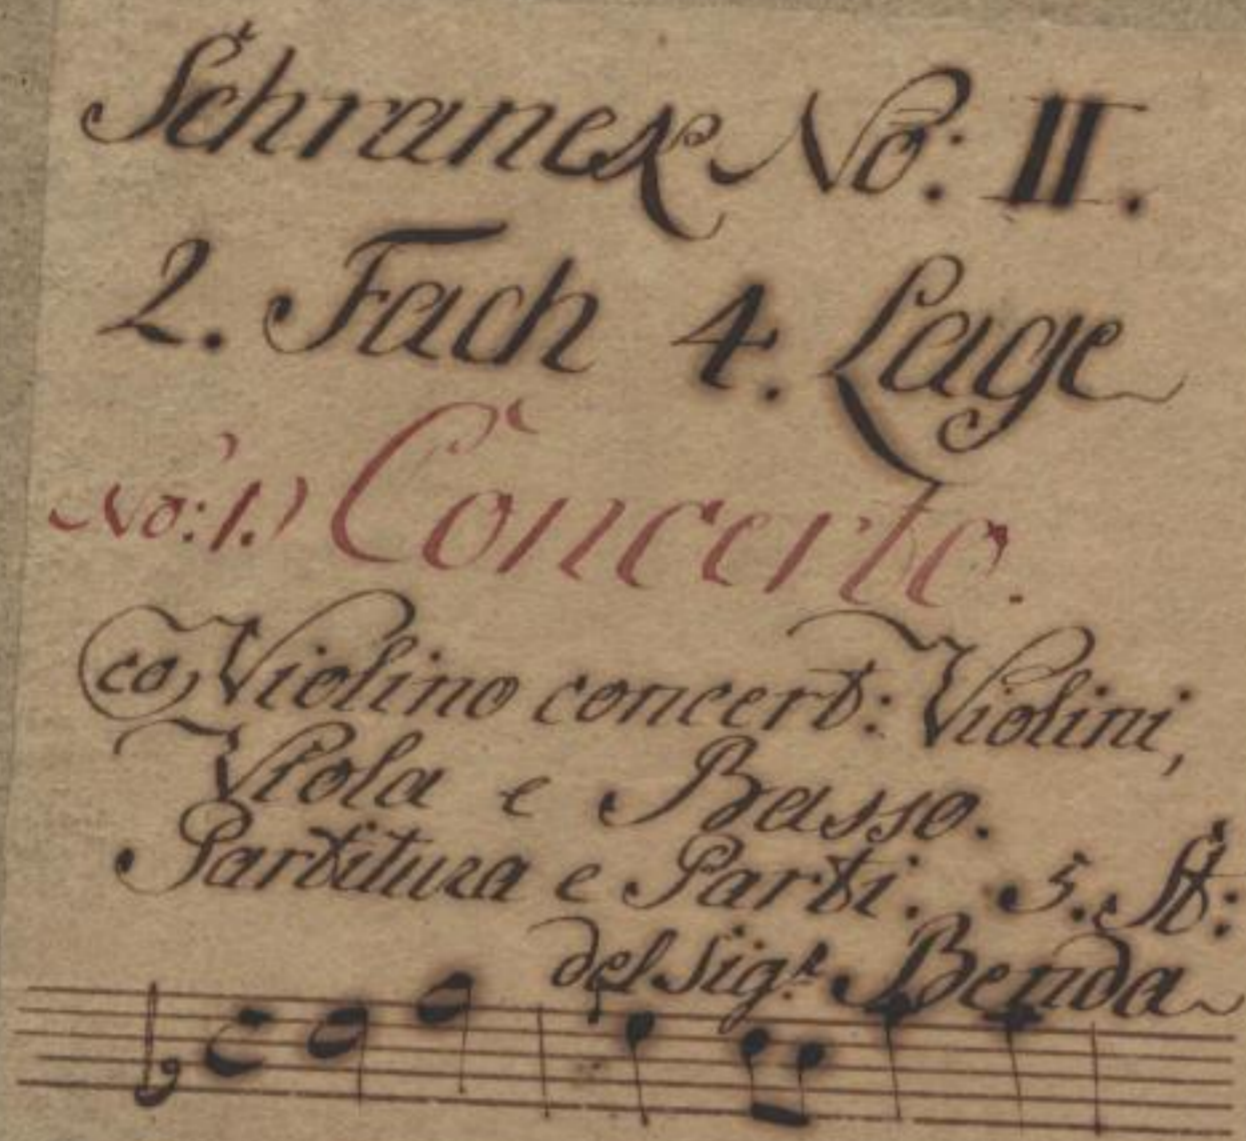 Schranck No: II.
2. Fach 4. Lage
No: 1.) Concerto.
co Violino concert: Violini,
Viola e Basso.
Partitura e Parti. 5. St:
del Sigr. Benda